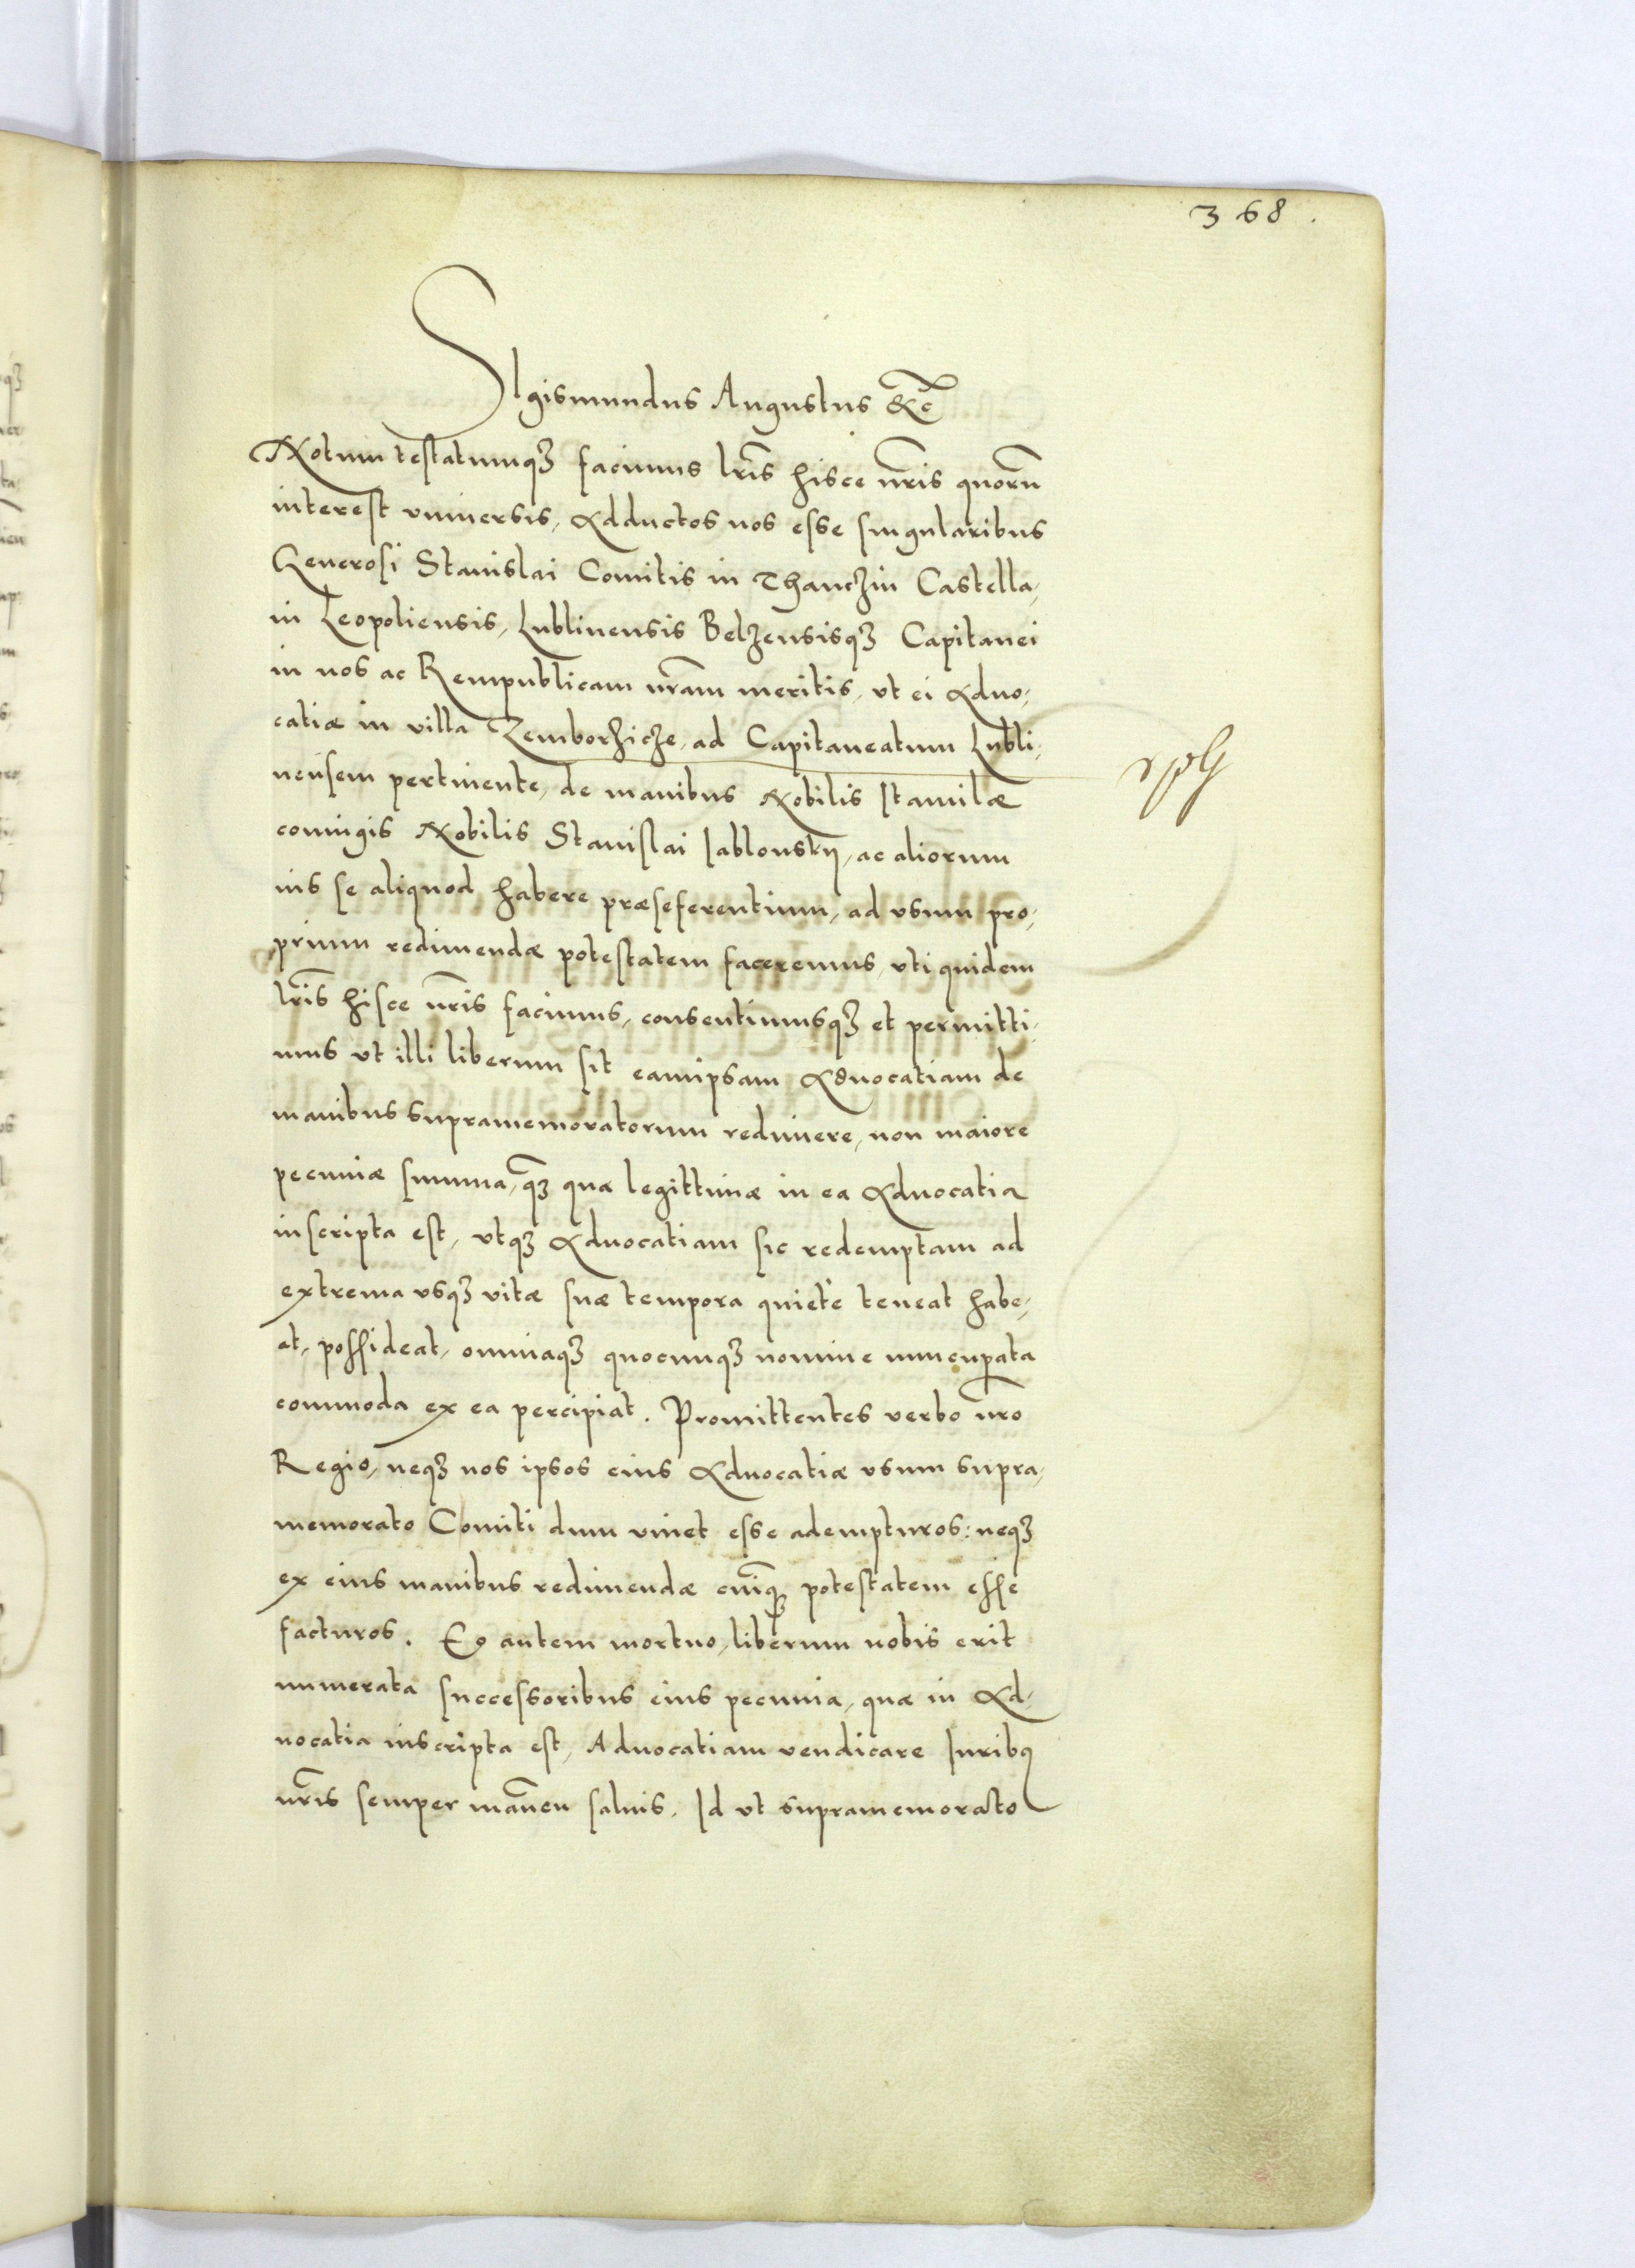 368.
SIgismundus Augustus &c̃
Notum testatumqȝ facimus lr̃is hisce nr̃is quorũ
interest vniuersis, Adductos nos esse singularibus
Generosi Stanislai Comitis in Thanczin Castella,
in Leopoliensis, Lublinensis Belzensisqȝ Capitanei
in nos ac Rempublicam nr̃am meritis, vt ei Aduo,
catiæ in villa Zemborzicze, ad Capitaneatum Lubli,
nensem pertinente, de manibus Nobilis Stamilæ
coniugis Nobilis Stanislai Iablonskij, ac aliorum
ius se aliquod habere præseferentium, ad vsum pro,
prium redimendæ potestatem faceremus, vti quidem
lr̃is hisce nr̃is facimus, consentimusqȝ et permitti,
mus vt illi liberum sit eamipsam Aduocatiam de
manibus supramemoratorum redimere, non maiore
pecuniæ summa, q̃ȝ quæ legittimæ in ea Aduocatia
inscripta est, vtqȝ Aduocatiam sic redemptam ad
extrema vsqȝ vitæ suæ tempora quietè teneat habe,
at, possideat, omniaqȝ quocunqȝ nomine nuncupata
commoda ex ea percipiat. Promittentes verbo nr̃o
Regio, neqȝ nos ipsos eius Aduocatiæ vsum supra,
memorato Comiti dum viuet esse adempturos: neqȝ
ex eius manibus redimendæ cuiq̃ȝ potestatem esse
facturos. Eo autem mortuo, liberum nobis erit
numerata successoribus eius pecunia, quæ in Ad,
uocatia inscripta est, Aduocatiam vendicare Iuribq
nr̃is semper mañen saluis. Id vt supramemorato